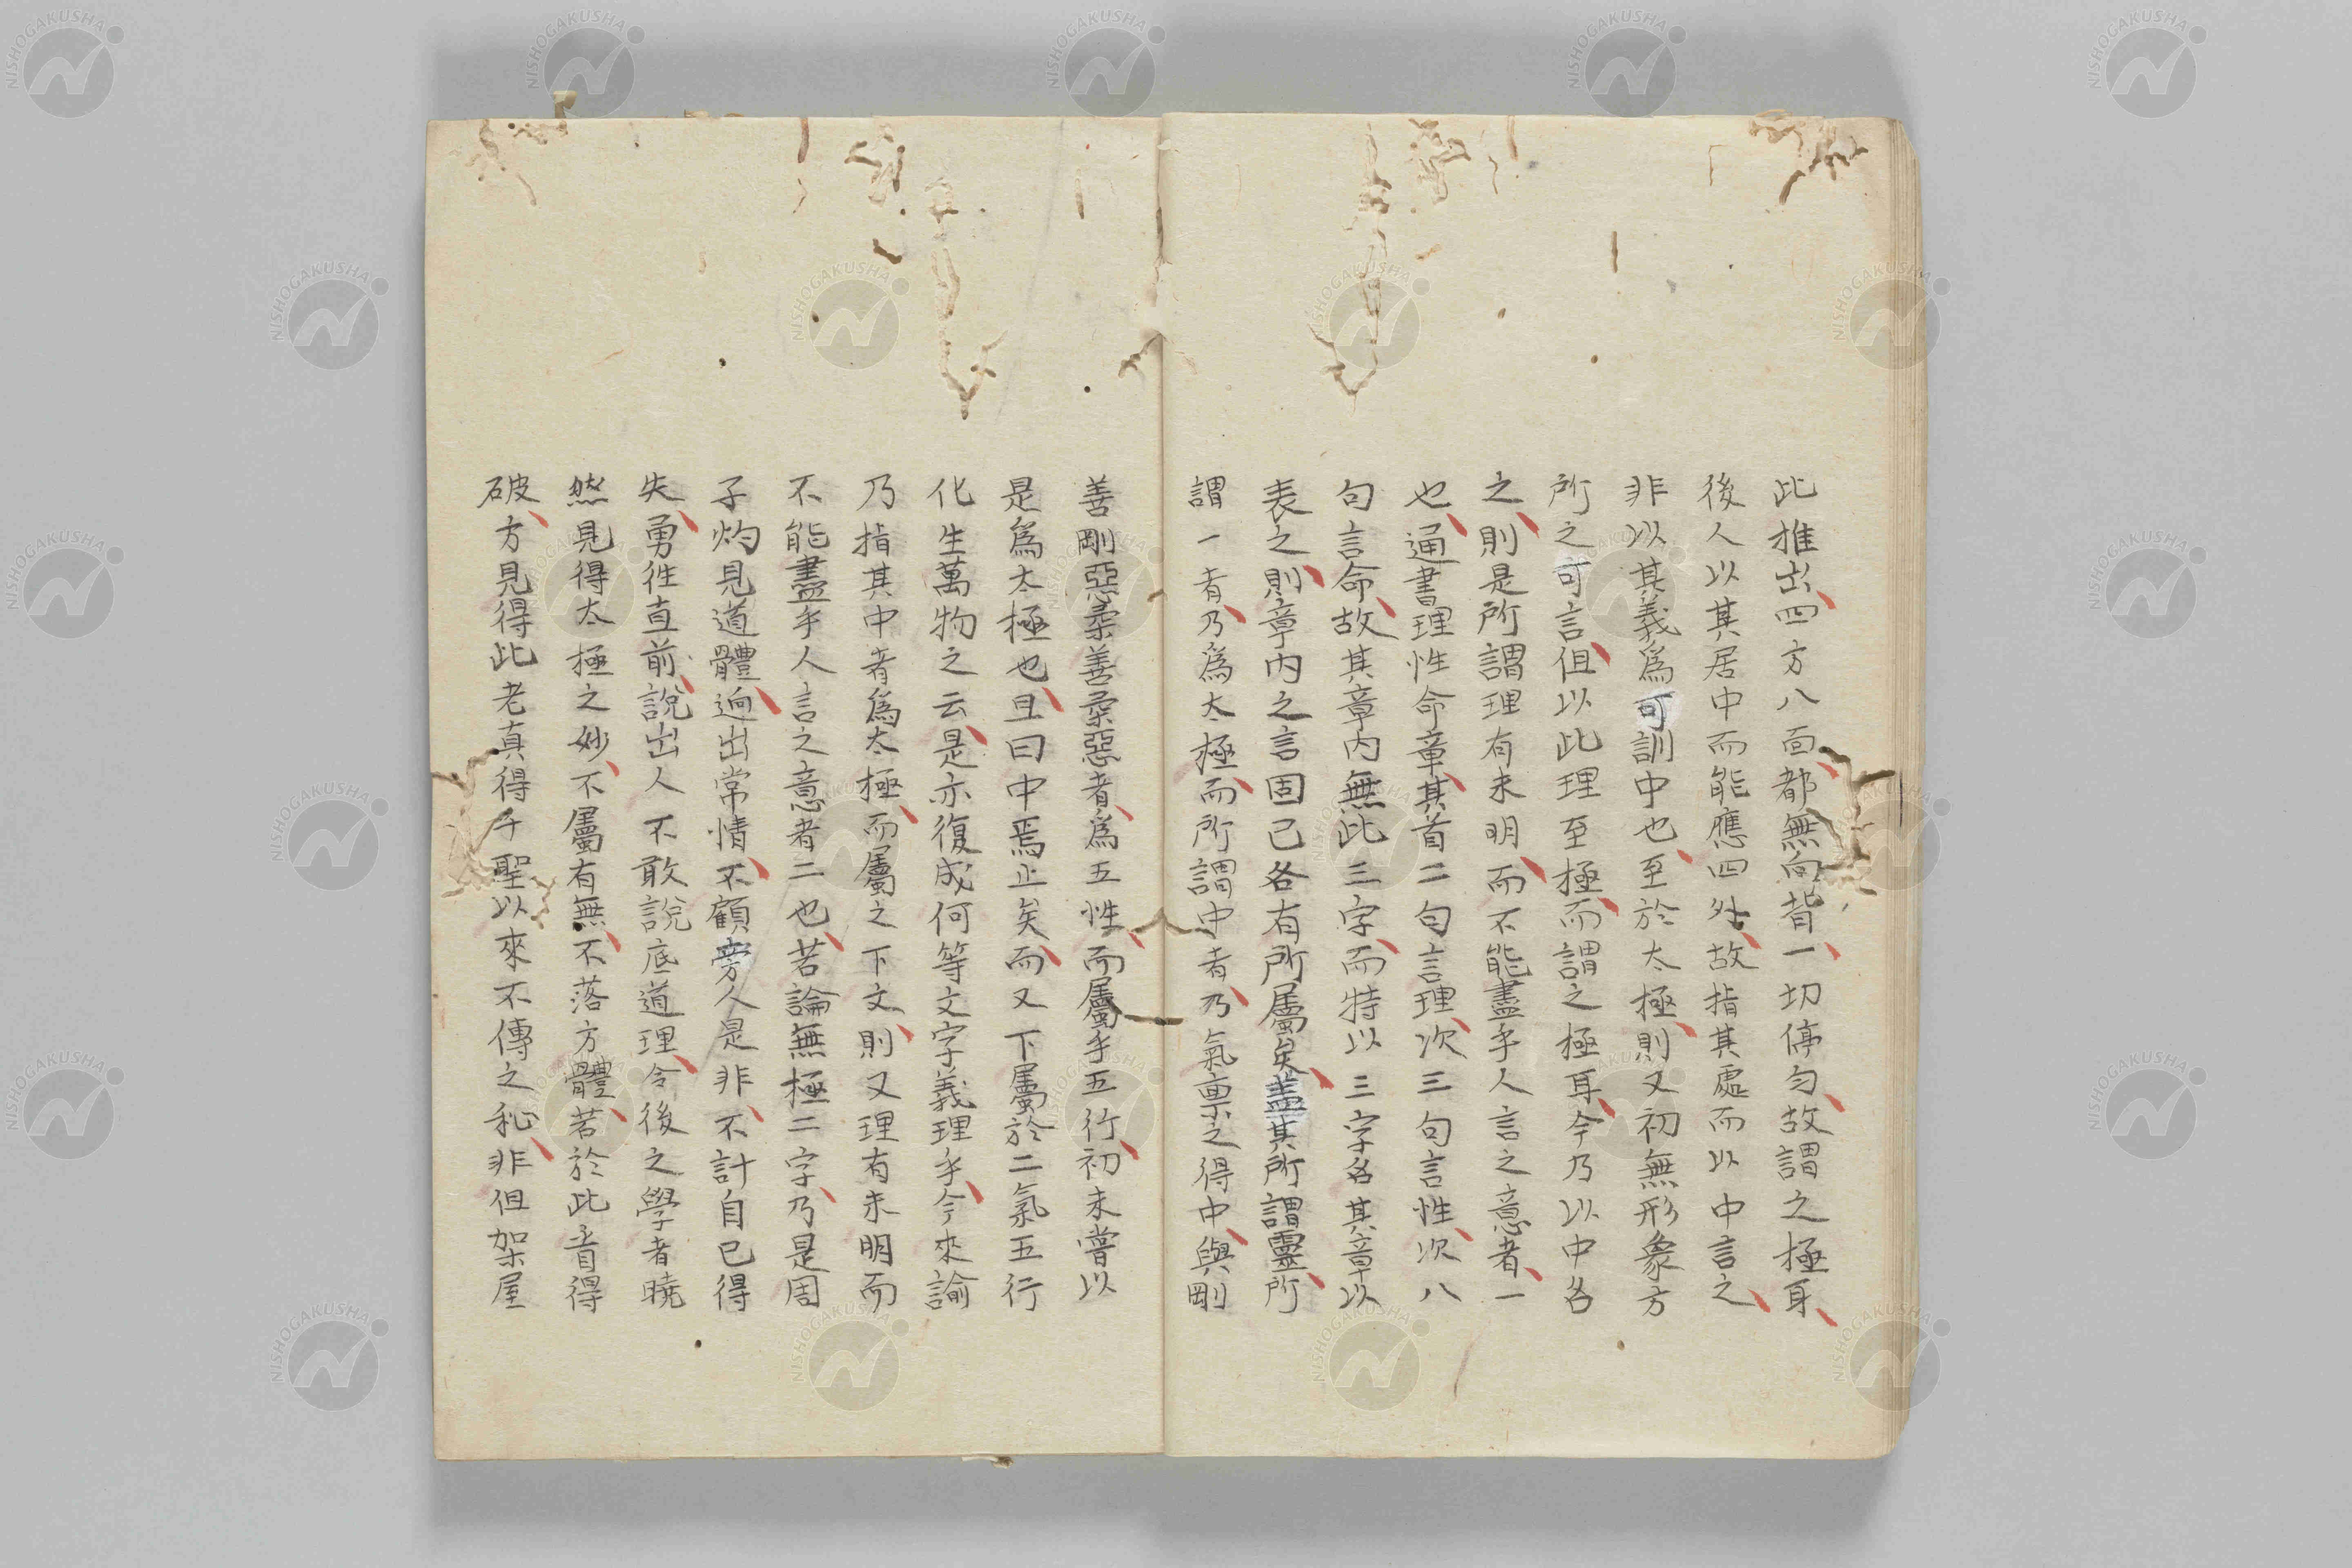 此推出四方八面都無向背一切停匀故謂之極耳
後人以其居中而能應四外故指其處而以中言之
非以其義爲可訓中也至於太極則又初無形象方
所之可言但以此理至極而謂之極耳今乃以中名
之則是所謂理有未明而不能盡乎人言之意者一
也通書理性命章其首二句言理次三句言性次八
句言命故其章内無此三字而特以三字名其章以
表之則章内之言固已各有所屬矣蓋其所謂靈所
謂一者乃爲太極而所謂中者乃氣禀之得中與剛
善剛惡柔善柔惡者爲五性而屬乎五行初未嘗以
是爲太極也且曰中焉止矣而又下屬於二氣五行
化生萬物之云是亦復成何等文字義理乎今來諭
乃指其中者爲太極而屬之下文則又理有未明而
不能盡乎人言之意者二也若論無極二字乃是周
子灼見道體逈出常情不顧旁人是非不計自已得
失勇徃直前說出人不敢說底道理令後之學者曉
然見得太極之妙不屬有無不落方體若於此看得
破方見得此老真得千聖以來不傳之秘非但架屋
NISHOGAKUSHA